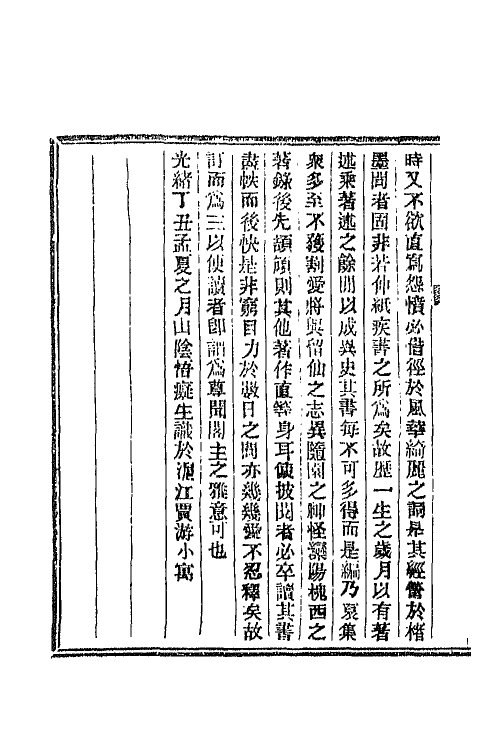 時又不欲直寫怨憤必借徑於風華綺麗之詞是其經營於楮
墨間者固非若伸紙疾書之所為矣故歷一生之歲月以有著
述乘著述之餘閒以成異史其書每不可多得而是編乃裒集
衆多至不獲割愛將與留仙之志異隨園之神怪灤陽槐西之
著錄後先頡頏則其他著作直等身耳使披閱者必卒讀其書
盡帙而後快是非窮目力於數日之間亦幾幾愛不忍釋矣故
訂而為三以便讀者卽謂為尊聞閣主之雅意可也
光緒丁丑孟夏之月山陰悟癡生識於滬江賈游小寓